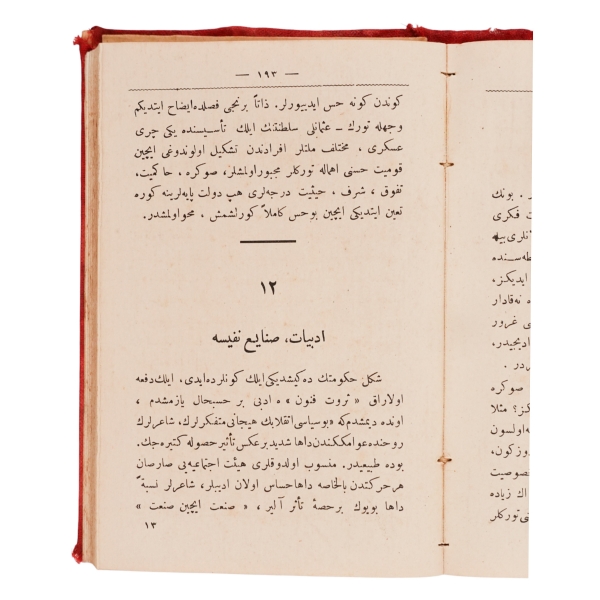 — ١٩٣ —
كوندن كونه حس ايديیورلر. ذاتاً برنجی فصلده ايضاح ايتديكم
وجهله تورك ـ عثمانلی سلطنتنك ايلك تأسيسنده يكی چری
عسكری ، مختلف ملتلر افرادندن تشكيل اولوندوغی ايچين
قوميت حسنی اهماله توركلر مجبور اولمشلر، صوكره ، حاكميت،
تفوق ، شرف ، حيثيت درجه‌لری هپ دولت پايه‌لرينه كوره
تعين ايتديكی ايچين بوحس كاملاً كورلشمش ، محو اولمشدر.
١٢
ادبيات، صنايع نفيسه
شكل حكومتك ده‌كيشديكی ايلك كونلرده‌ايدی. ايلك‌دفعه
اولاراق « ثروت فنون » ه ادبی بر حسبحال يازمشدم ،
اونده ديمشدم‌كه «بوسياسی انقلابك هيجانی متفكرلرك، شاعرلرك
روحنده عوامككندن‌داها شديد برعكس تأثير حصوله كتيره‌جك.
بوده طبيعيدر. منسوب اولدوقلری هيئت اجتماعيه‌يی صارصان
هرحركتدن بالخاصه داها حساس اولان اديبلر، شاعرلر نسبةً
داها بويوك برحصهٔ تأثر آلير ، « صنعت ايچين صنعت »
١٣
ر . بونك
ت فكری
طه‌سنده
ايديكز.
ه نه‌قادار
ی غرور
اديجيدر.
ردر .
صوكره
كز؟ مثلا
ه‌اولسون
دوزكون،
خصوصيت
اك زياده
نی توركلر